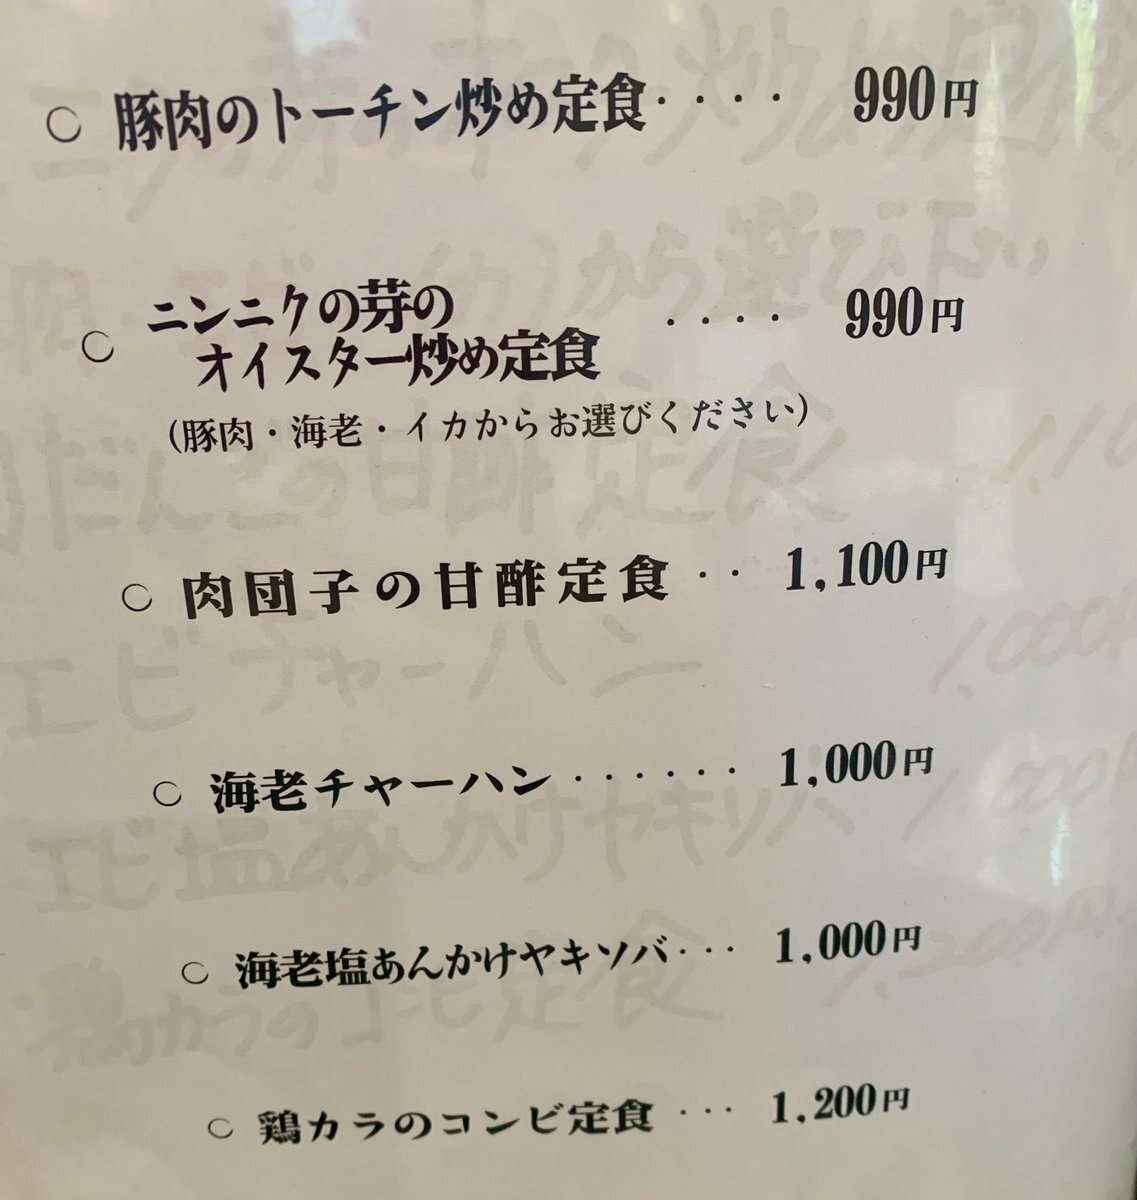 ○ 豚肉のトーチン炒め定食・・・・ 990円
ニンニクの芽の
○ オイスター炒め定食 ・・・・ 990円
(豚肉・海老・イカからお選びください)
○ 肉団子の甘酢定食 ・・ 1,100円
○ 海老チャーハン ・・・・・・ 1,000円
○ 海老塩あんかけヤキソバ・・・ 1,000円
○ 鶏カラのコンビ定食 ・・・ 1,200円